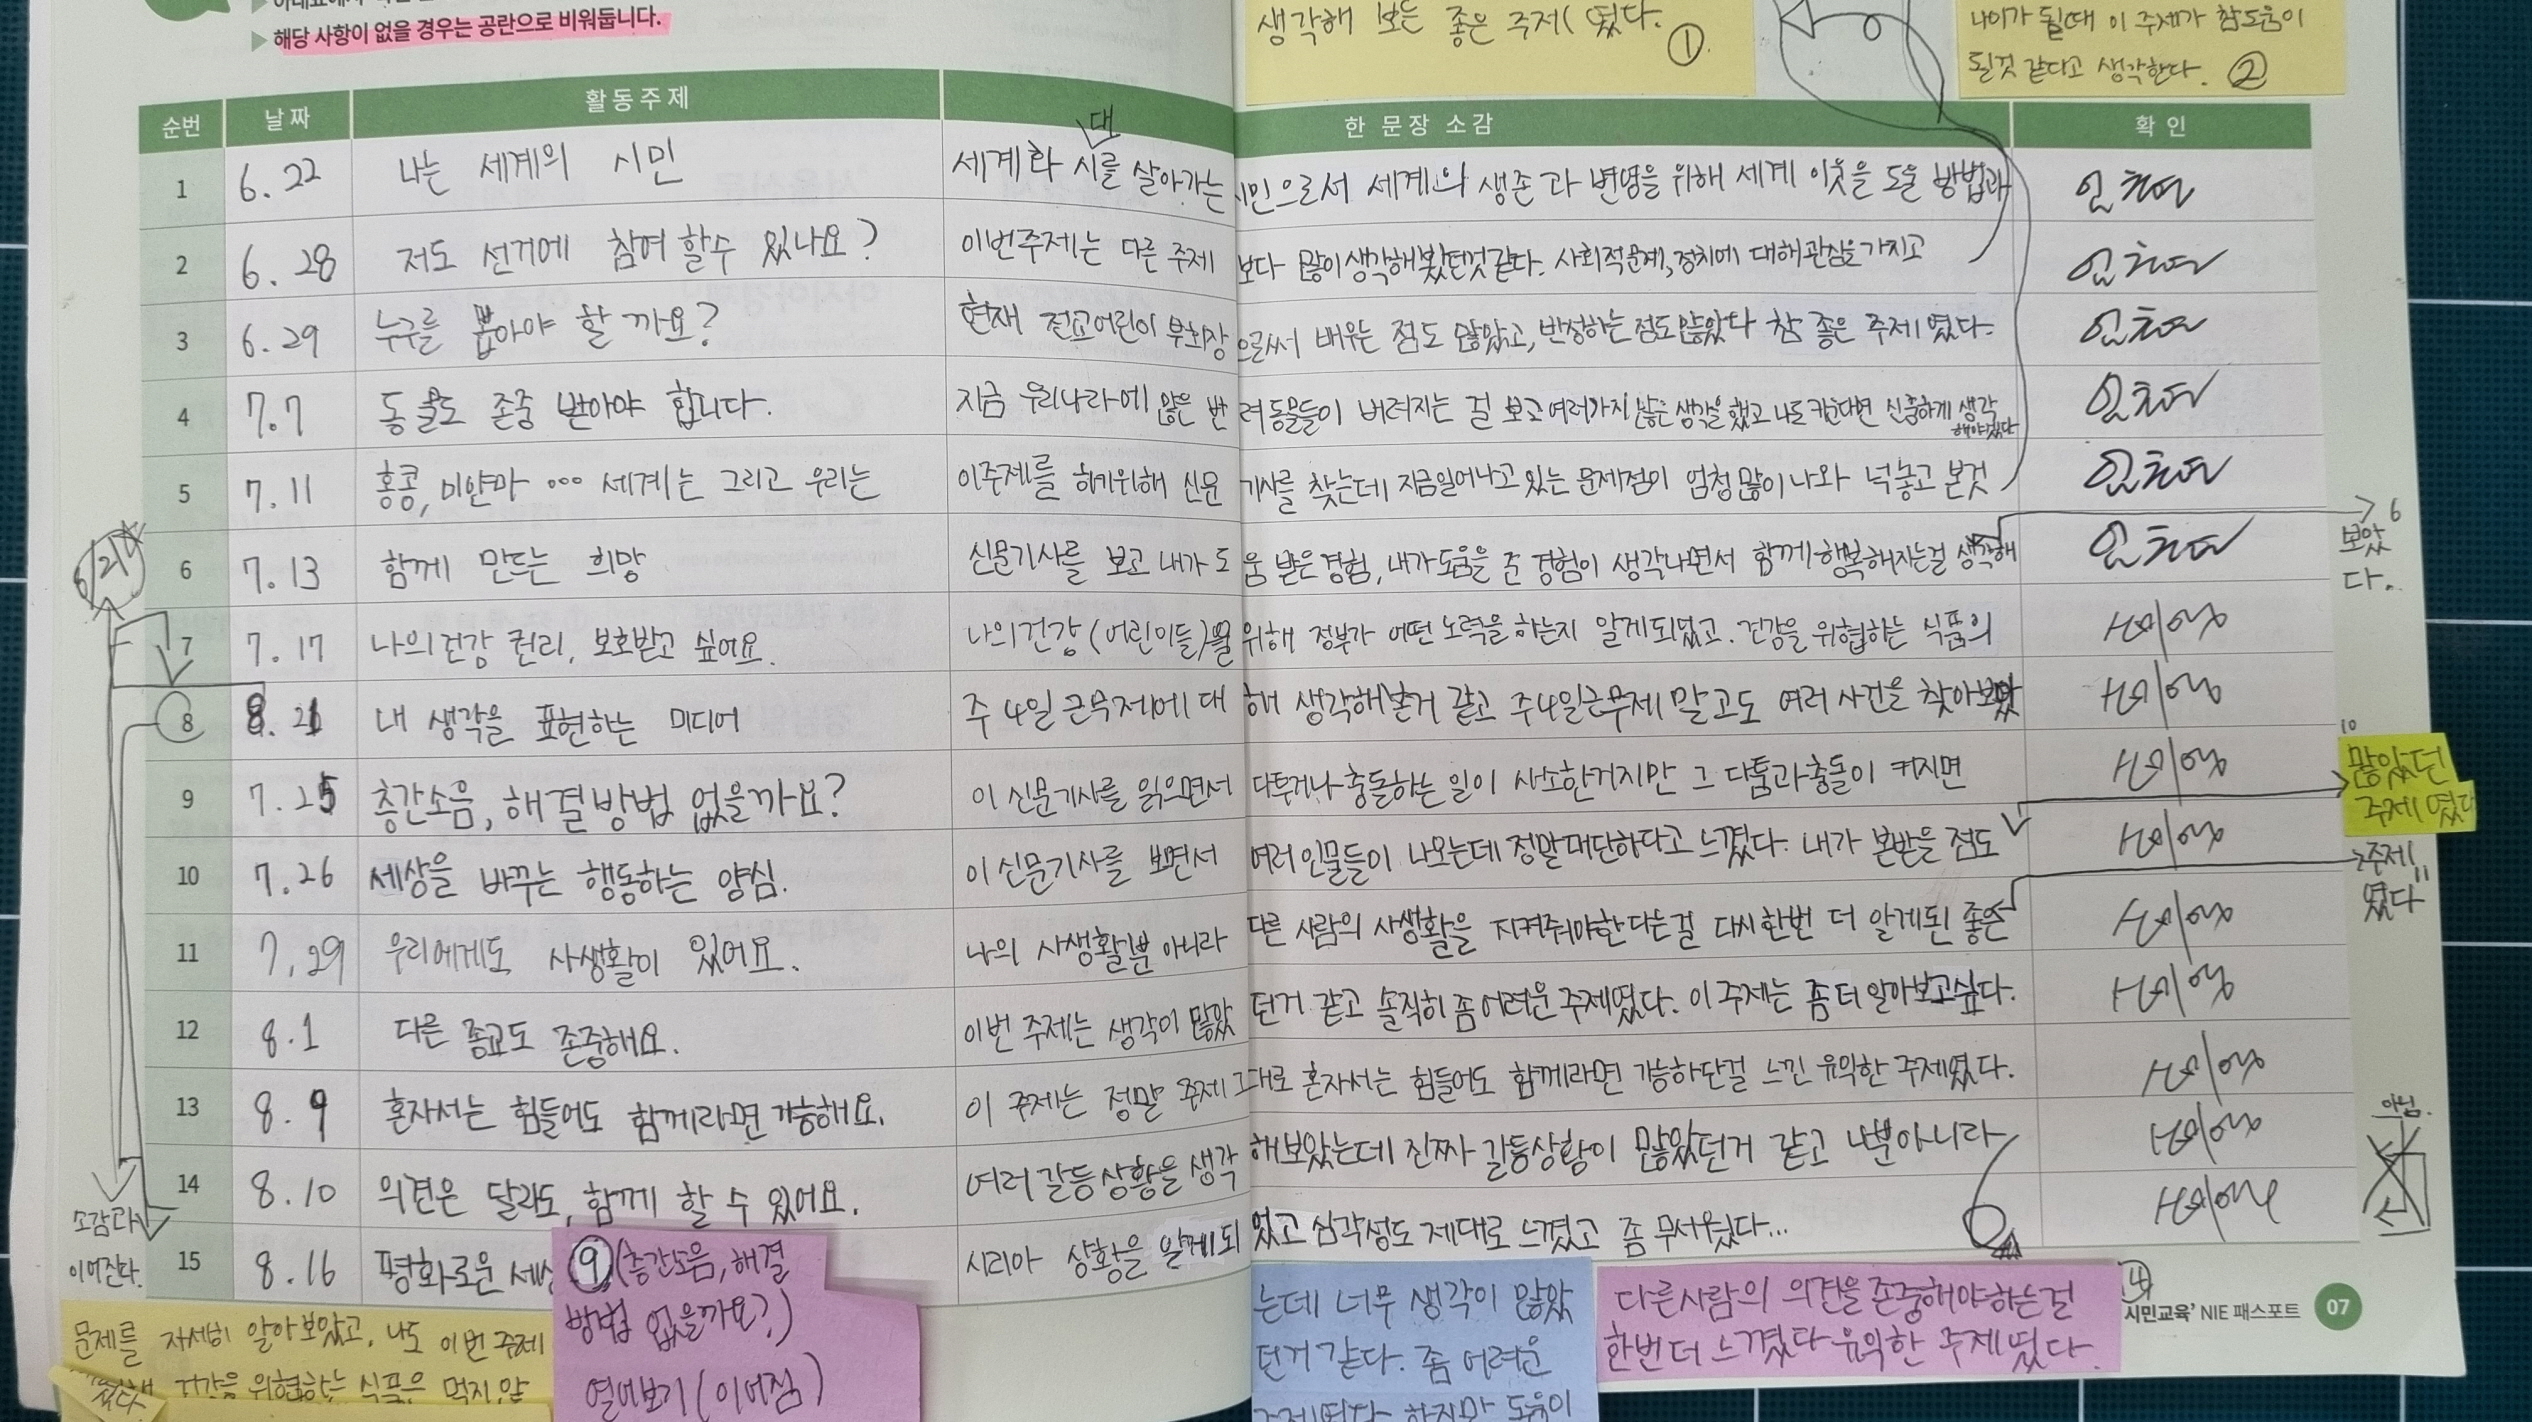 해당 사항이 없을 경우는 공란으로 비워둡니다.
생각해 보는 좋은 주제였다. ①
나이가 될때 이 주제가 참도움이
될것 같다고 생각한다. ②
순번 날짜 활동주제 한 문장 소감 확인
대
1 6.22 나는 세계의 시민 세계화 시를 살아가는 시민으로서 세계의 생존과 번영을 위해 세계 이웃을 도울 방법과
2 6.28 저도 선거에 참여 할수 있나요? 이번주제는 다른 주제 보다 많이 생각해봤던것 같다. 사회적문제, 정치에 대해 관심을 가지고
3 6.29 누구를 뽑아야 할 까요? 현재 전교어린이 부회장 으로써 배우는 점도 많았고, 반성하는 점도 많았다 참 좋은 주제 였다.
4 7.7 동물도 존중 받아야 합니다. 지금 우리나라에 많은 반 려동물들이 버려지는 걸 보고 여러가지 많은 생각을 했고 나도 키운다면 신중하게 생각
해야겠다
5 7.11 홍콩, 미얀마 ... 세계는 그리고 우리는 이주제를 하기위해 신문 기사를 찾는데 지금일어나고 있는 문제점이 엄청 많이 나와 넋놓고 본것
6 7.13 함께 만드는 희망 신문기사를 보고 내가 도 움 받은 경험, 내가도움을 준 경험이 생각나면서 함께 행복해지는걸 생각해
6
보았
다.
7 7.17 나의 건강 권리, 보호받고 싶어요. 나의건강 (어린이들)을 위해 정부가 어떤 노력을 하는지 알게되었고. 건강을 위협하는 식품의
8 8.21 내 생각을 표현하는 미디어 주 4일 근무제에 대 해 생각해본거 같고 주4일근무제 말고도 여러 사건을 찾아보았
9 7.25 층간소음, 해결방법 없을까요? 이 신문기사를 읽으면서 다투거나 충돌하는 일이 사소한거지만 그 다툼과 충돌이 커지면
10
많았던
주제 였다
10 7.26 세상을 바꾸는 행동하는 양심. 이 신문기사를 보면서 여러 인물들이 나오는데 정말 대단하다고 느꼈다. 내가 본받을 점도
11 7.29 우리에게도 사생활이 있어요. 나의 사생활뿐 아니라 다른 사람의 사생활을 지켜줘야한다는걸 다시 한번 더 알게된 좋은
주제 11
였다
12 8.1 다른 종교도 존중해요. 이번 주제는 생각이 많았 던거 같고 솔직히 좀 어려운 주제였다. 이 주제는 좀 더 알아보고싶다.
13 8.9 혼자서는 힘들어도 함께라면 가능해요. 이 주제는 정말 주제 그대로 혼자서는 힘들어도 함께라면 가능하단걸 느낀 유익한 주제였다.
14 8.10 의견은 달라도, 함께 할 수 있어요. 여러 갈등상황을 생각 해보았는데 진짜 갈등상황이 많았던거 같고 나뿐아니라
아님.
15 8.16 평화로운 세상 시리아 상황을 알게 되 었고 심각성도 제대로 느꼈고 좀 무서웠다...
소감과
이어진다.
문제를 자세히 알아보았고, 나도 이번 주제
건강을 위협하는 식품은 먹지 않
⑨ (층간소음, 해결
방법 없을까요?)
열어보기 (이어짐)
는데 너무 생각이 많았
던거 같다. 좀 어려운
주제였다 하지만 도움이
다른사람의 의견을 존중해야하는걸
한번 더 느꼈다 유익한 주제 였다.
⑭
시민교육' NIE 패스포트 07